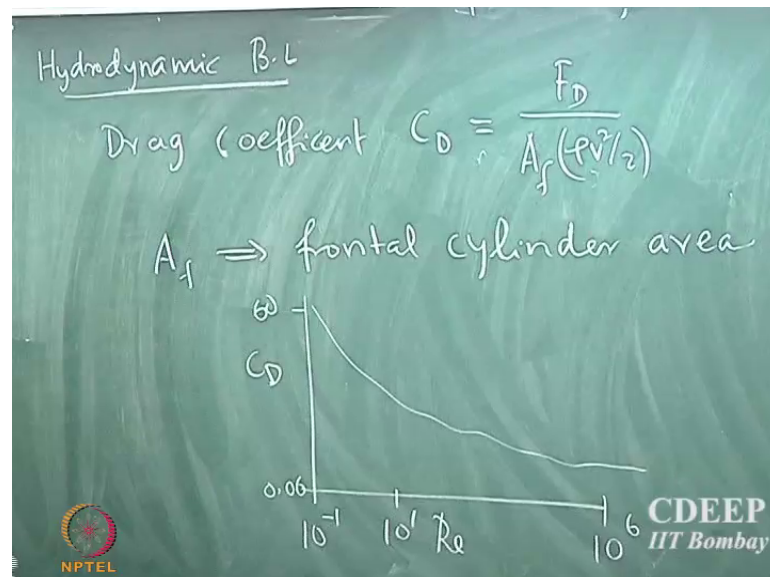 Hydrodynamic B.L
Drag Coefficent C_D = F_D / A_f (ρV²/2)
A_f ⇒ frontal cylinder area
60
C_D
0.06
10⁻¹ 10¹ Re 10⁶
CDEEP
IIT Bombay
NPTEL